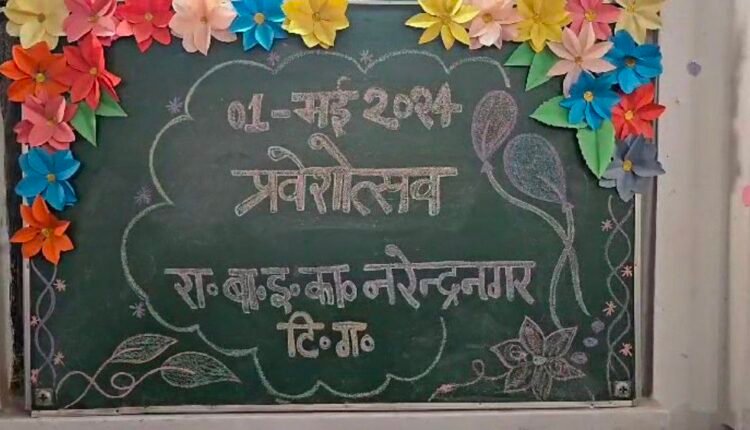 01-मई २०२4
प्रवेशोत्सव
रा॰ बा॰ इ॰ का॰ नरेन्द्रनगर
टि॰ ग॰